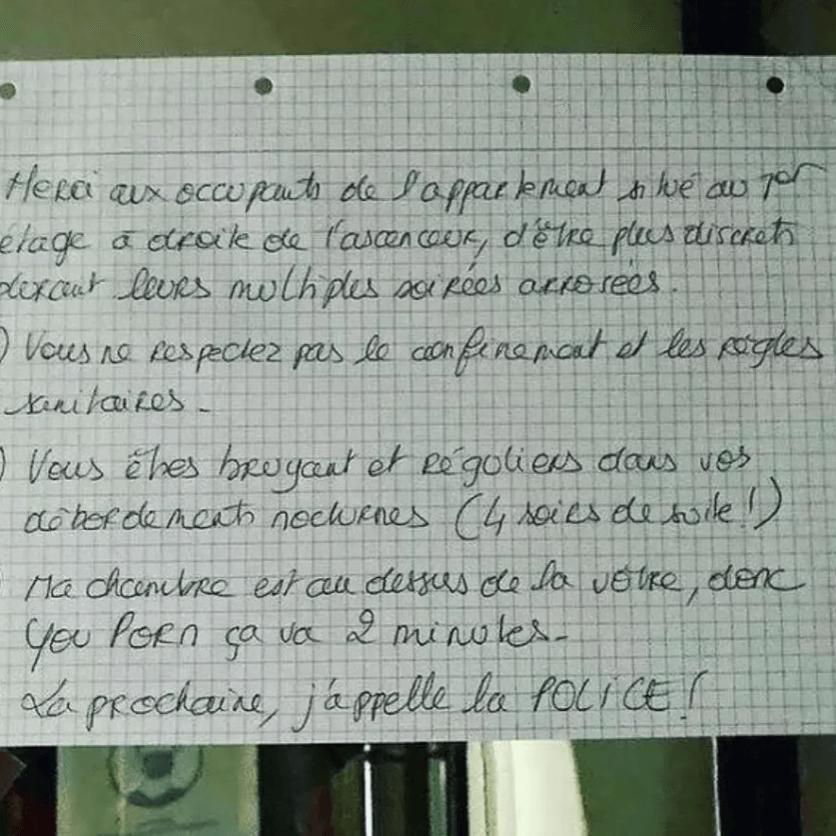 Merci aux occupants de l'appartement situé au 1er
etage à droite de l'ascenceur, d'être plus discrets
durant leurs multiples soirées arrosées.
) Vous ne respectez pas le confinement et les règles
sanitaires -
) Vous êtes bruyant et réguliers dans vos
débordements nocturnes (4 soirs de suite !)
Ma chambre est au dessus de la vôtre, donc
You Porn ça va 2 minutes -
La prochaine, j'appelle la POLICE !